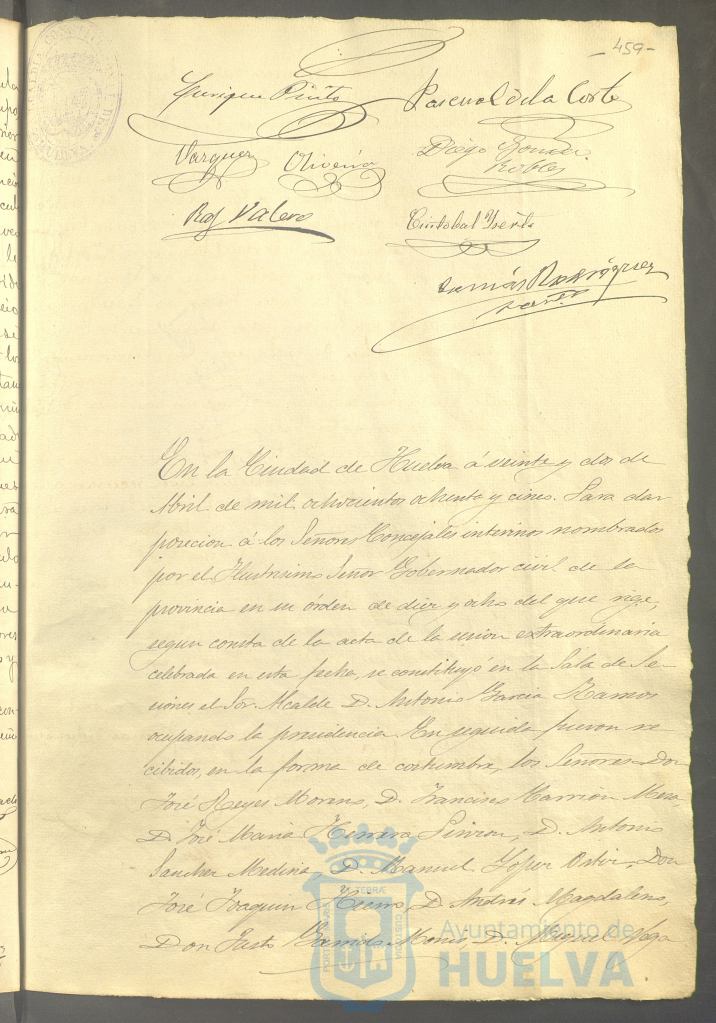 - 459 -
Enrique Pinto
Pascual de la Corte
Vazquez Oliveira
Diego
Robles
Raf Valero
Cristobal Yserte
Tomás Rodriguez
En la Ciudad de Huelva á veinte y dos de
Abril de mil ochocientos ochenta y cinco. Para dar
posecion á los Señores Concejales interinos nombrados
por el Ilustrisimo Señor Gobernador civil de la
provincia en su órden de diez y ocho del que rige,
segun consta de la acta de la sesion extraordinaria
celebrada en esta fecha, se constituyó en la Sala de Se-
ciones el Sor. Alcalde D. Antonio Garcia Ramos
ocupando la presidencia. En seguida fueron re
cibidos, en la forma de costumbre, los Señores Don
José Reyes Moreno, D. Francisco Carrion Mesa,
D. José Maria Herrera Pinzon, D. Antonio
Sanchez Medina, D. Manuel Lopez Ortiz, Don
José Joaquin D. Andrés Magdaleno,
Don Justo Garrido D. Miguel Vega
Ayuntamiento de
HUELVA